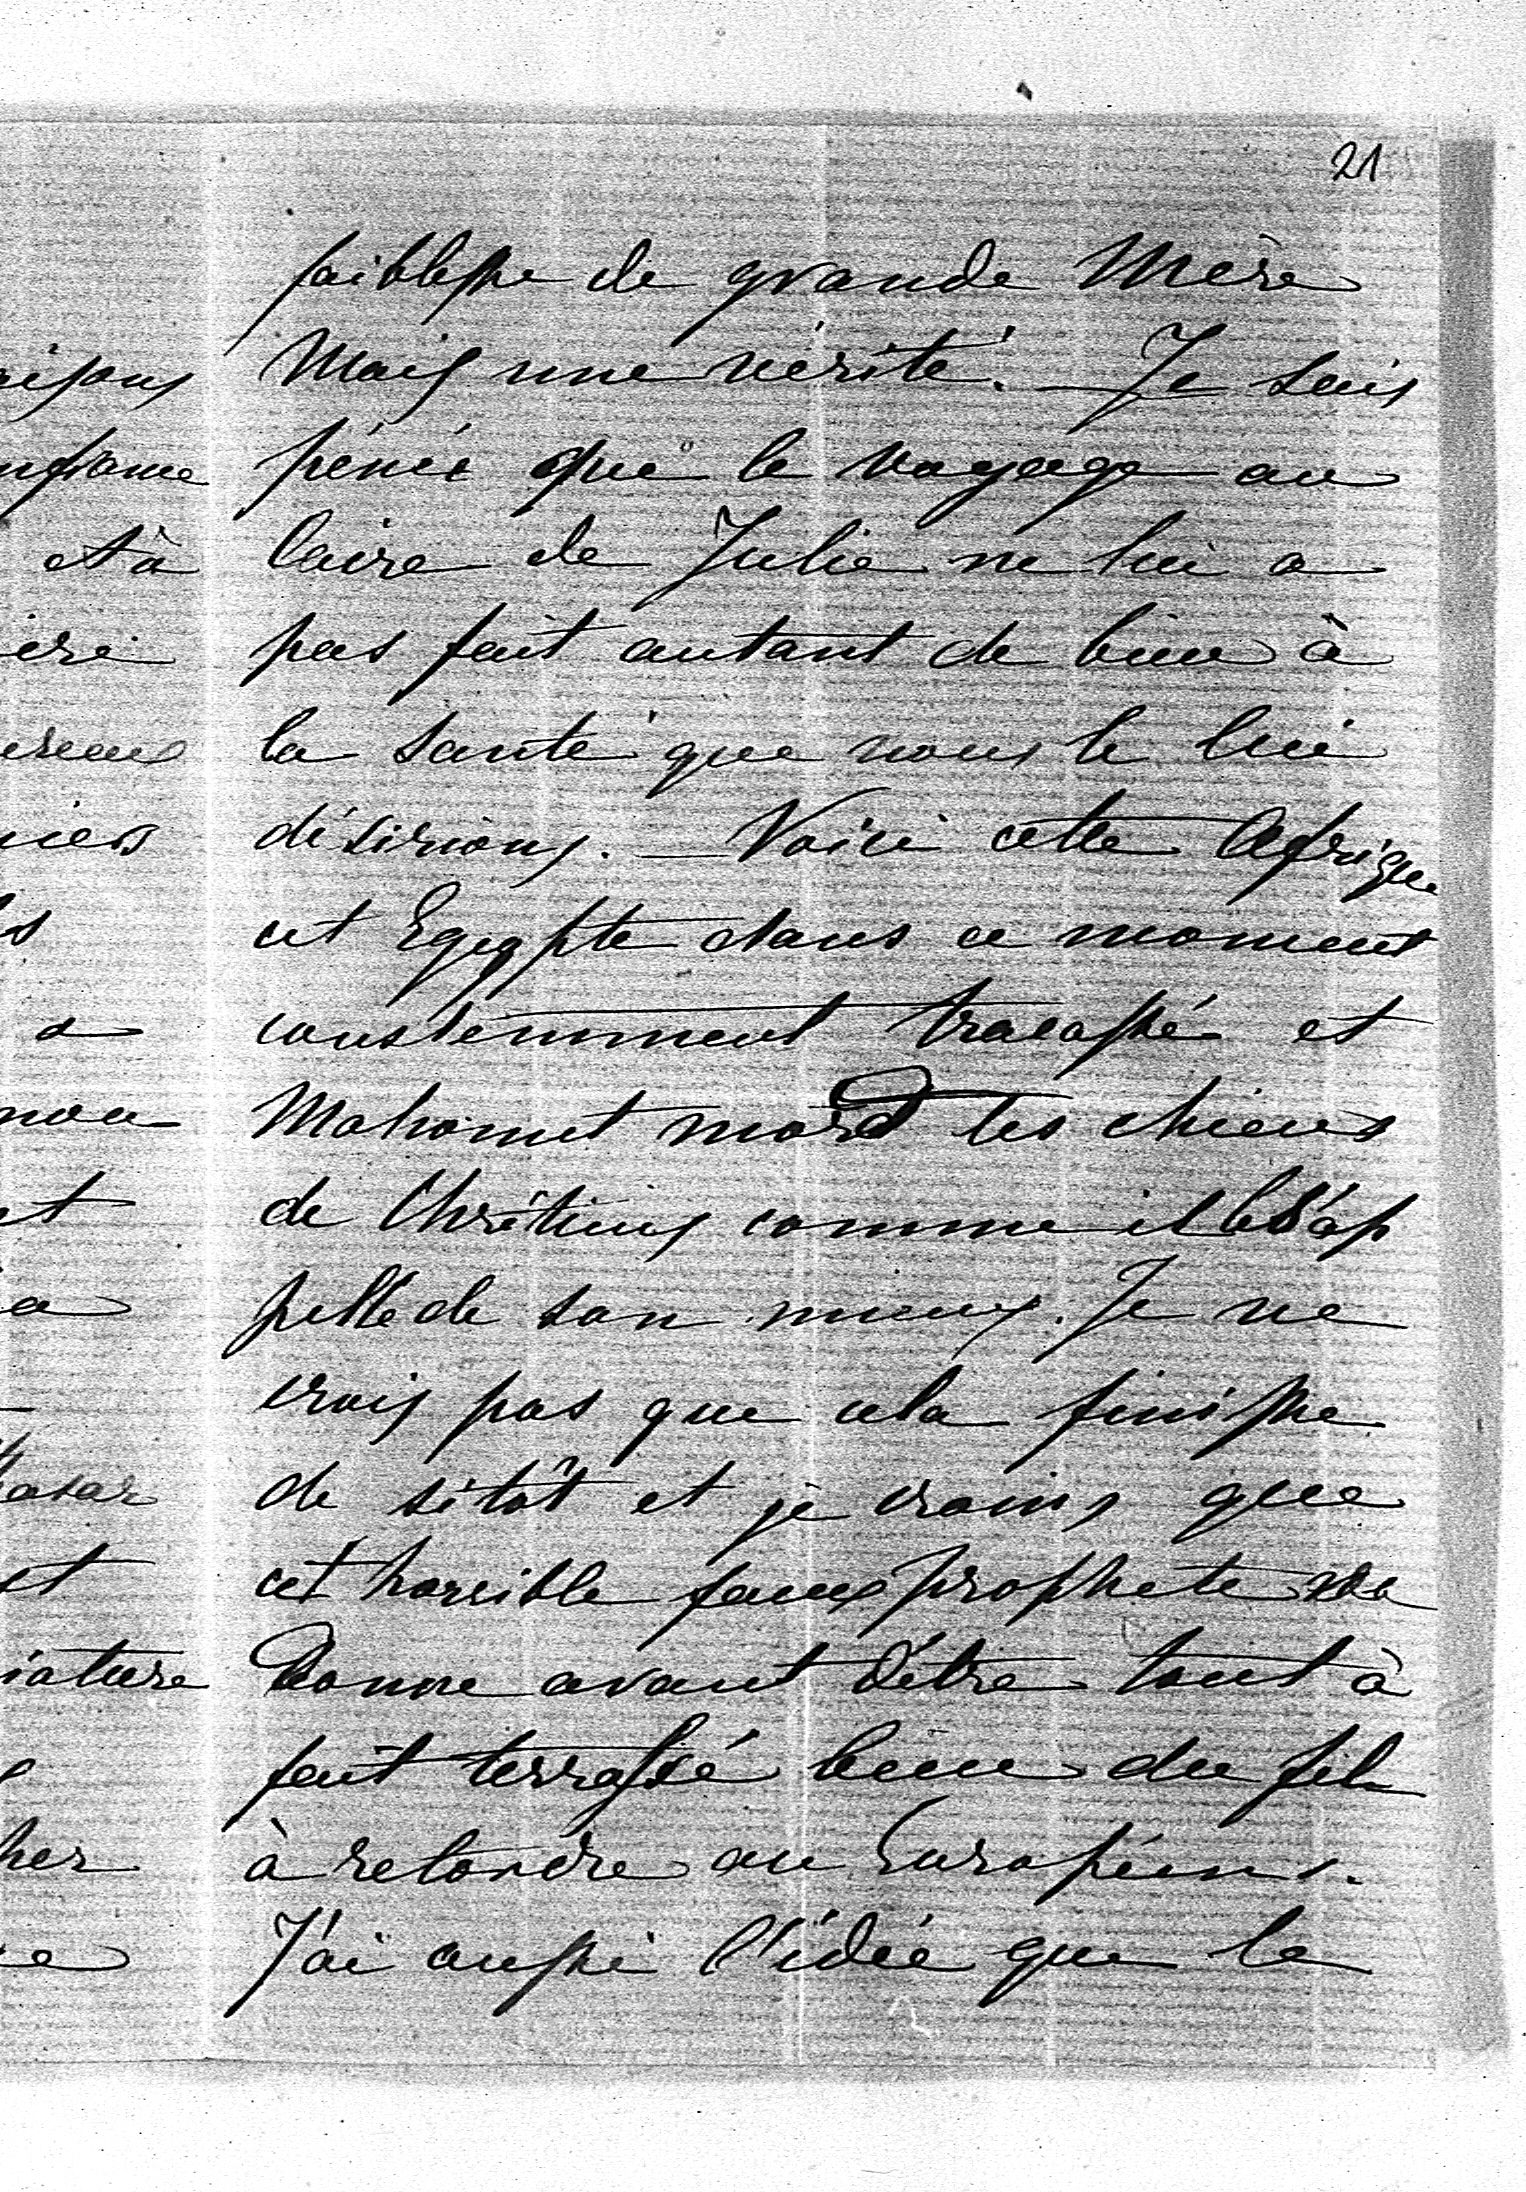 21
faiblesse de grande Mère
Mais une vérité. — Je suis
pénée que le voyage au
Caire de Julie ne lui a
pas fait autant de bien à
la santé que nous le lui
désirions. — Voici cette Afrique
et Egypte dans ce moment
constemment tracassé et
Mahomet mord les chiens
de Chrétiens comme il les ap
pelle de son mieux. Je ne
crois pas que cela finisse
de sitôt et je crains que
cet horrible faux prophete
donne avant d'être tout à
fait terrassé bien du fil
à retordre au Européens.
J'ai aussi l'idée que le